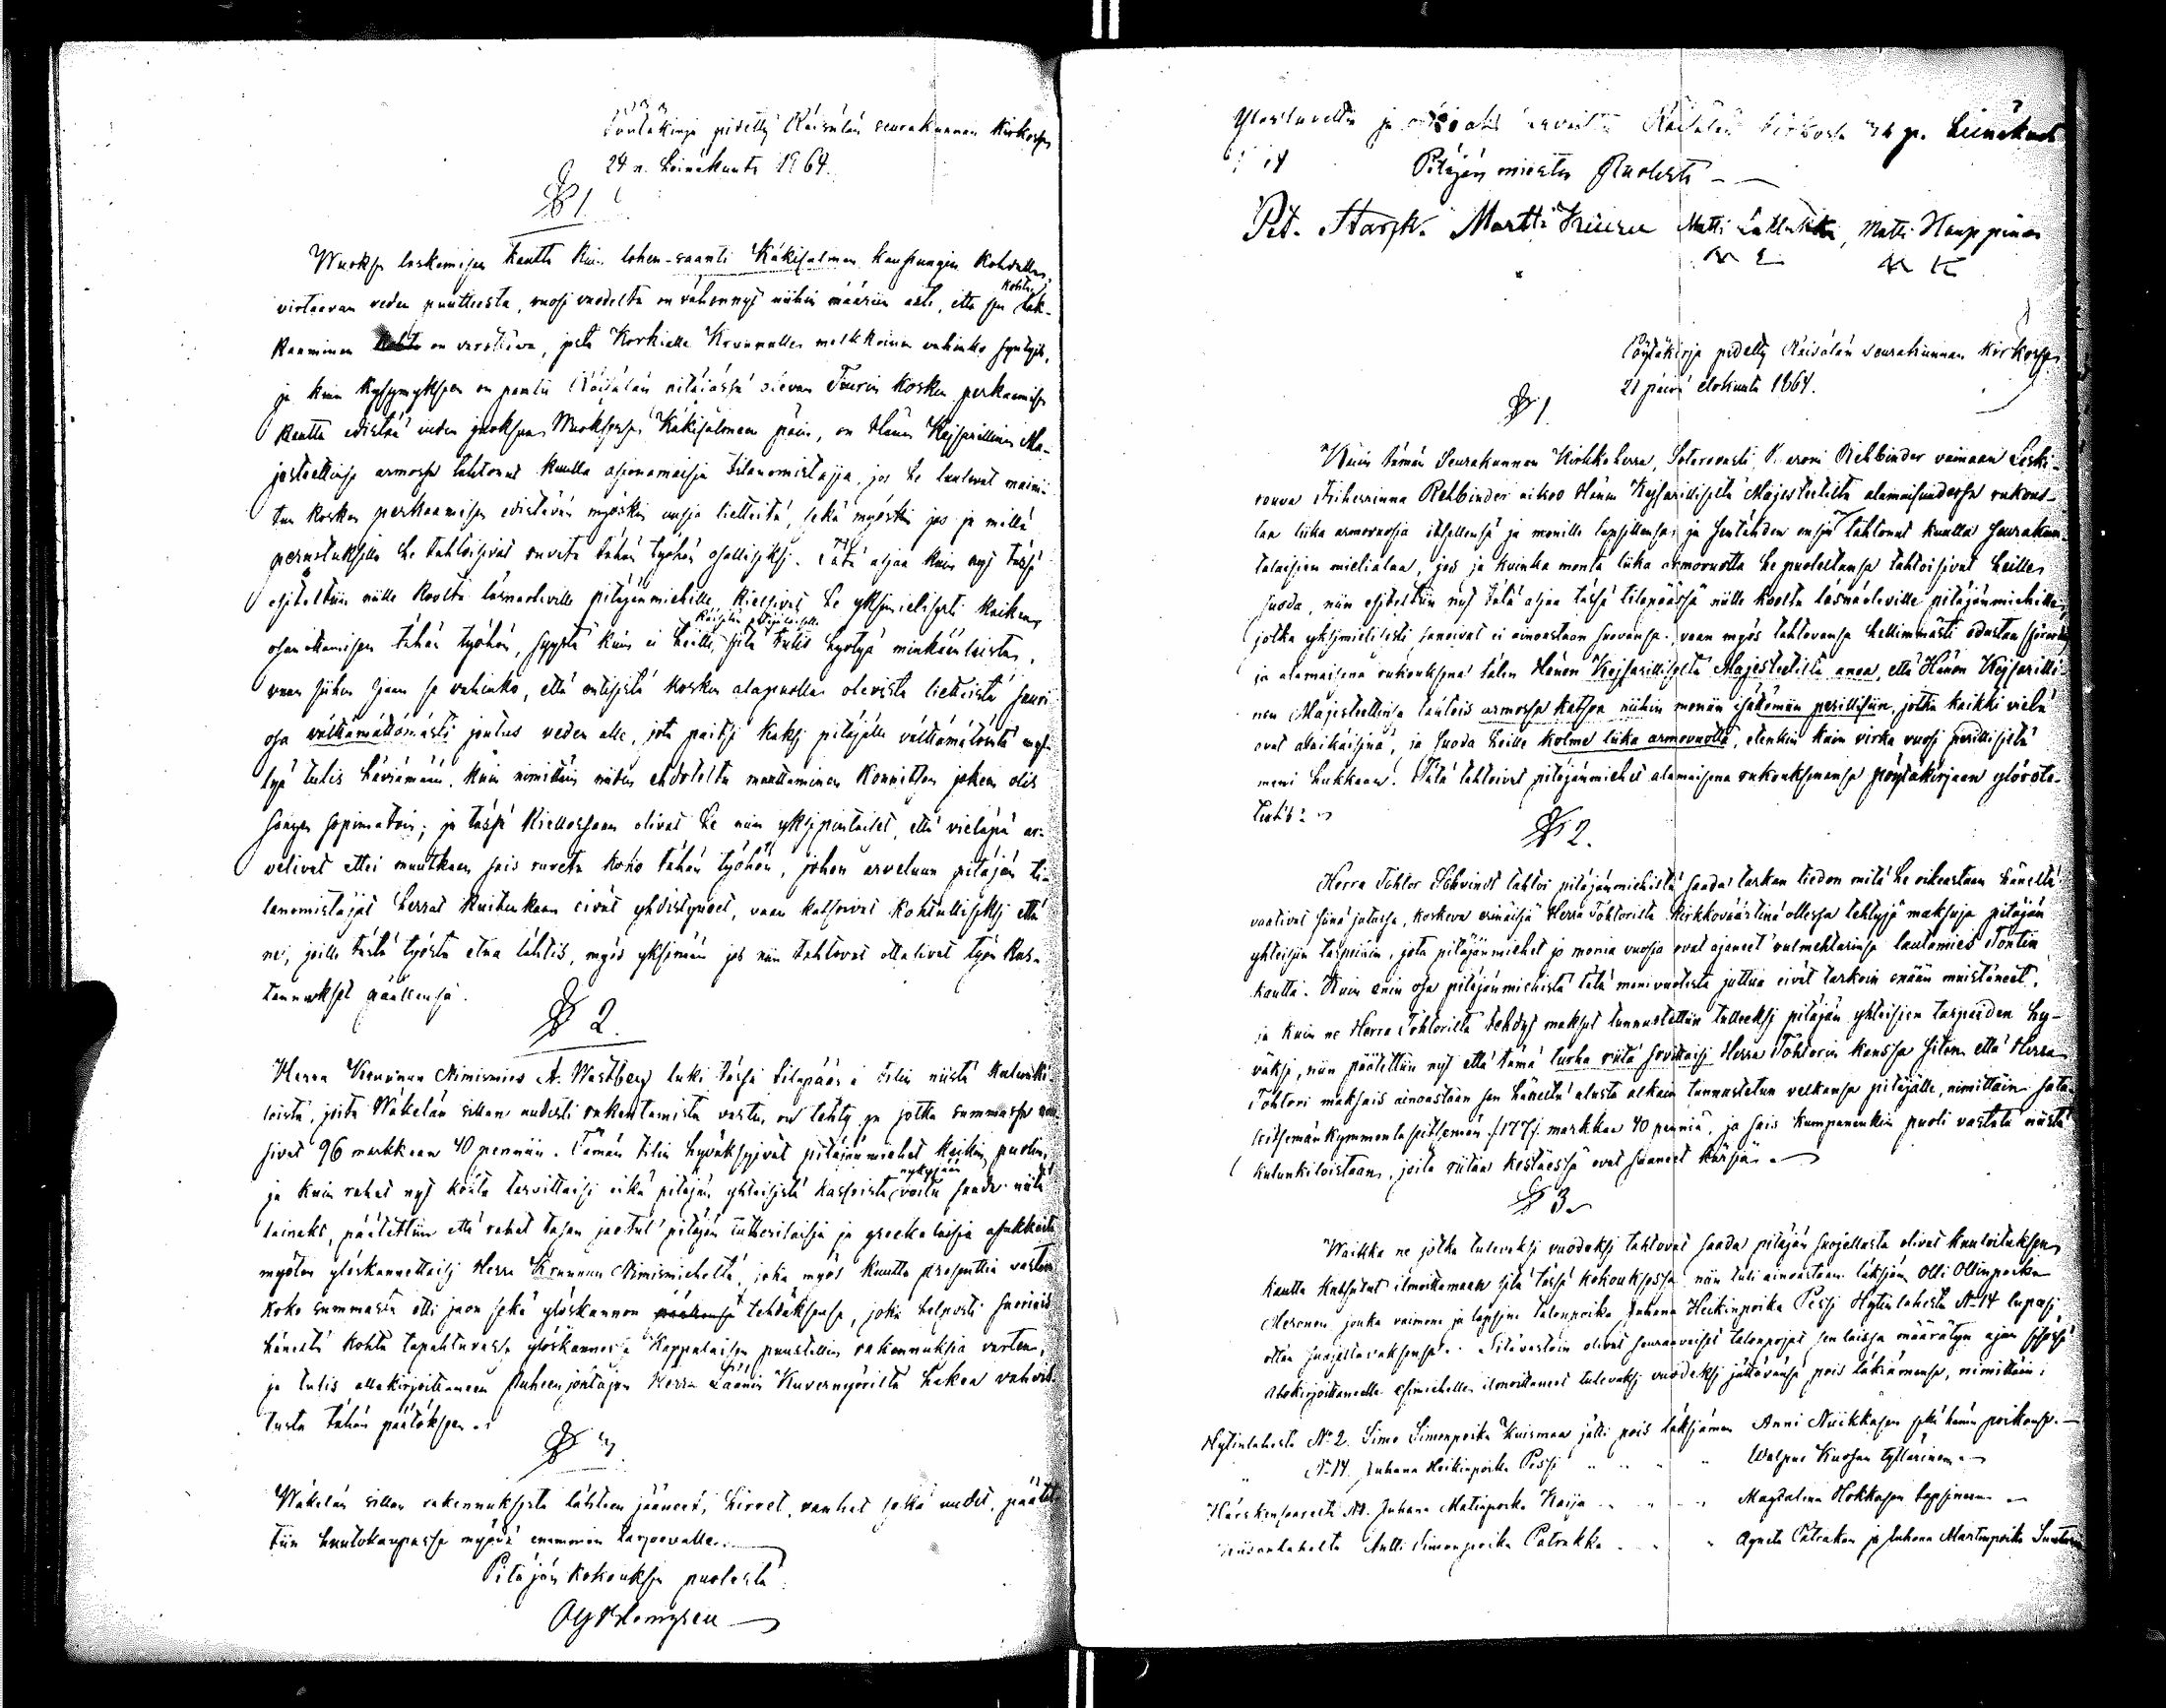 Pöytäkirja pidetty Räisälän seurakunnan Kirkossa
24 p. Heinäkuuta 1864.
§ 1.
Wuoksen laskemisen kautta kuin lohen-saanti Käkisalmen kaupungin kohdallen,
virtaavan veden puutteesta, vuosi vuodelta on vähennyt niihin määriin asti, että sen
kaaminen on verottava, josta Korkialle Kruunullen melkkoinen vahinko syntyisi,
ja kuin kysymyksen on pantu Räisälän pitäjässä olevan Tiurin Kosken perkaamisen
kautta edistää veden juoksua Wuoksessa Käkisalmeen päin, on Hänen Keisarillinen Ma-
jesteettinsa armossa tahtonut kuulla asianomaisia tilanomistajia, jos he luulevat maini-
tun Kosken perkaamisen edistävän myöskin uusia lietteitä, sekä myöskin jos ja millä
perustuksilla he tahtoisivat ruveta tähän työhön osallisiksi. Tätä asiaa kuin nyt tässä
esiteltiin niille koolta läsnäoleville pitäjänmiehille, kielsivät he yksimielisesti kaiken
osan ottamisen tähän työhön, syystä kuin ei heille, Räisälän pitäjäläisille siitä tulis hyötyä minkäänlaista,
vaan siihen siaan se vahinko, että entisistä kosken alapuolla olevista lietteistä suuri
osa välttämättömästi joutuis veden alle, jota paitsi kaksi pitäjälle välttämätöintä
tyä tulis häviämään. Kuin nimittäin niiden ehdoteltu muuttaminen Konnitsan jokeen olis
sangen sopimatoin; ja tässä kiellossaan olivat he niin yksipintaiset, että vieläpä ar-
velivat ettei muutkaan sais ruveta koko tähän työhön, johon arveluun pitäjän ti-
lanomistajat herrat kuitenkaan eivät yhdistyneet, vaan katsoivat kohtuulliseksi että
ne, joille tästä työstä etua lähtis, myös yksinään jos niin tahtovat ottakoot työn kus-
tannukset päällensä.
§ 2.
Herra Kruunun Nimismies A. Wastberg luki tässä tilapäässä tilin niistä kulunki-
loista, joita Näkelän sillan uudesti rakentamista varten on tehty ja jotka summassa nou-
sivat 96 markkaan 40 penniin. Tämän tilin hyväksyivät pitäjänmiehet kaikin puolin,
ja kuin rahat nyt kohta tarvittaisi eikä pitäjän yhteisistä kassoista nykyjään voitu saada niitä
lainaks, päätettiin että rahat tasan jaetut pitäjän lutherilaisia ja greekalaisia asukkaita
myöten ylöskannettaisi Herra Kruunun Nimismieheltä, joka myös kuutta prosenttia vasten
koko summasta otti jaon sekä ylöskannon tehdäksensä, joka helposti suoriais
häneltä kohta tapahtuvassa ylöskannossa Kappalaisen puustellin rakennuksia varten,
ja tulis allekirjoittaneen Puheenjohtajan Herra Läänin Kuvernyöriltä hakea vahvis-
tusta tähän päätöksen.
§ 3
Näkelän sillan rakennuksesta lähteen jääneet, hirret, vanhat sekä uudet, päätet-
tiin huutokaupassa myydä enemmin tarjoovalle.
Pitäjän kokouksen puolesta:
Ylösluettu ja Räisälän kirkossa 24 p. Heinäkuut
Pitäjän miesten Puolesta
Pet. Stargk. Martti Kiuru Matti Lättukka, Matti Kauppinen
M L M K
Pöytäkirja pidetty Räisälän seurakunnan Kirkossa
21 päivä elokuuta 1864.
§ 1.
Kuin tämän Seurakunnan Kirkkoherra, Laterovasti, Paroni Rehbinder vainaan Leski-
rouva Friherrinna Rehbinder aikoo Hänen Keisarilliselta Majesteetilta alamaisuudessa rukoul-
la liika armovuosia itsellensä ja monille lapsillensa, ja sentähden ensin tahtonut kuulla seurakun-
talaisien mielialaa, jos ja kuinka monta liika armovuotta he puolestansa tahtoisivat heille
suoda, niin esiteltiin nyt tätä asiaa tässä tilapäässä niille koolta läsnäoleville pitäjänmiehille,
jotka yksimielisesti sanoivat ei ainoastaan suovansa, vaan myös tahtovansa hellimmästi edustaa
ja alamaisena rukouksena tälen Hänen Keisarilliselta Majesteetilta anoa, että Hänen Keisarilli-
nen Majesteettinsa täutois armossa katsoa niihin moniin isättömiin perillisiin, jotka kaikki vielä
ovat alaikäisiä, ja suoda heille kolme liika armovuotta, etenkin kuin virka vuosi perillisiltä
meni hukkaan. Tätä tahtoivat pitäjänmiehet alamaisena rukouksenansa pöytäkirjaan ylösote-
tuks.
§ 2.
Herra Tohtor Schvindt tahtoi pitäjänmiehistä saada tarkan tiedon mitä he oikeastaan häneltä
vaativat siinä jutussa, koskeva erinäisiä Herra Tohtorista kirkkoväärtinä ollessa tehtyjä maksuja pitäjän
yhteisiin tarpeisiin, jota pitäjänmiehet jo monia vuosia ovat ajaneet valmehtarinsa lautamies Tontin
kautta. Kuin enin osa pitäjänmiehistä tätä monivuotista juttua eivät tarkoin enään muistaneet,
ja kuin ne Herra Tohtorilta tehdyt maksut tunnustettiin tulleeksi pitäjän yhteisien tarpeiden hy-
väksi, niin päätettiin nyt että tämä turha riita sovittaisi Herra Tohtorin kanssa siten että Herra
Tohtori maksais ainoastaan sen häneltä alusta alkain tunnustetun velkansa pitäjälle, nimittäin sata-
seitsemänkymmentäseitsemän /177/ markkaa 40 penniä, ja sais kumpanenkin puoli vastata niistä
kulunkiloistaan, joita riitan kestäessä ovat saaneet kärsiä.
§ 3
Waikka ne jotka tuleveksi vuodeksi tahtovat saada pitäjän suojellusta olivat kuuloituksen
kautta kutsutut ilmoittamaan sitä tässä kokouksessa, niin tuli ainoastaan läksiäin Olli Ollinpoika
Meronen, jonka vaimon ja lapsen talonpoika Juhana Heikinpoika Pessi Hytinlahesta No 14 lupasi
ottaa suojelluksensa. Sitävastoin olivat seuraavaiset talonpojat sen laissa määrätyn ajan sisässä
allekirjoittaneelle esimiehelle ilmoittaneet tulevaksi vuodeksi jättävänsä pois läksiämensä, nimittäin:
Hytinlahesta No 2. Simo Simonpoika Kuisma jätti pois läksiämen Anni Niikkasen sekä hänen poikansa.
" No 14. Juhana Heikinpoika Pessi " " " " Walpuri Kuosan tyttärineen
Juhana Matinpoika Kaija " " " Magdalena Hokkasen lapsineen
Antti Simonpoika Patrakka " " " Agneta Patrakan ja Juhana Martinpoika